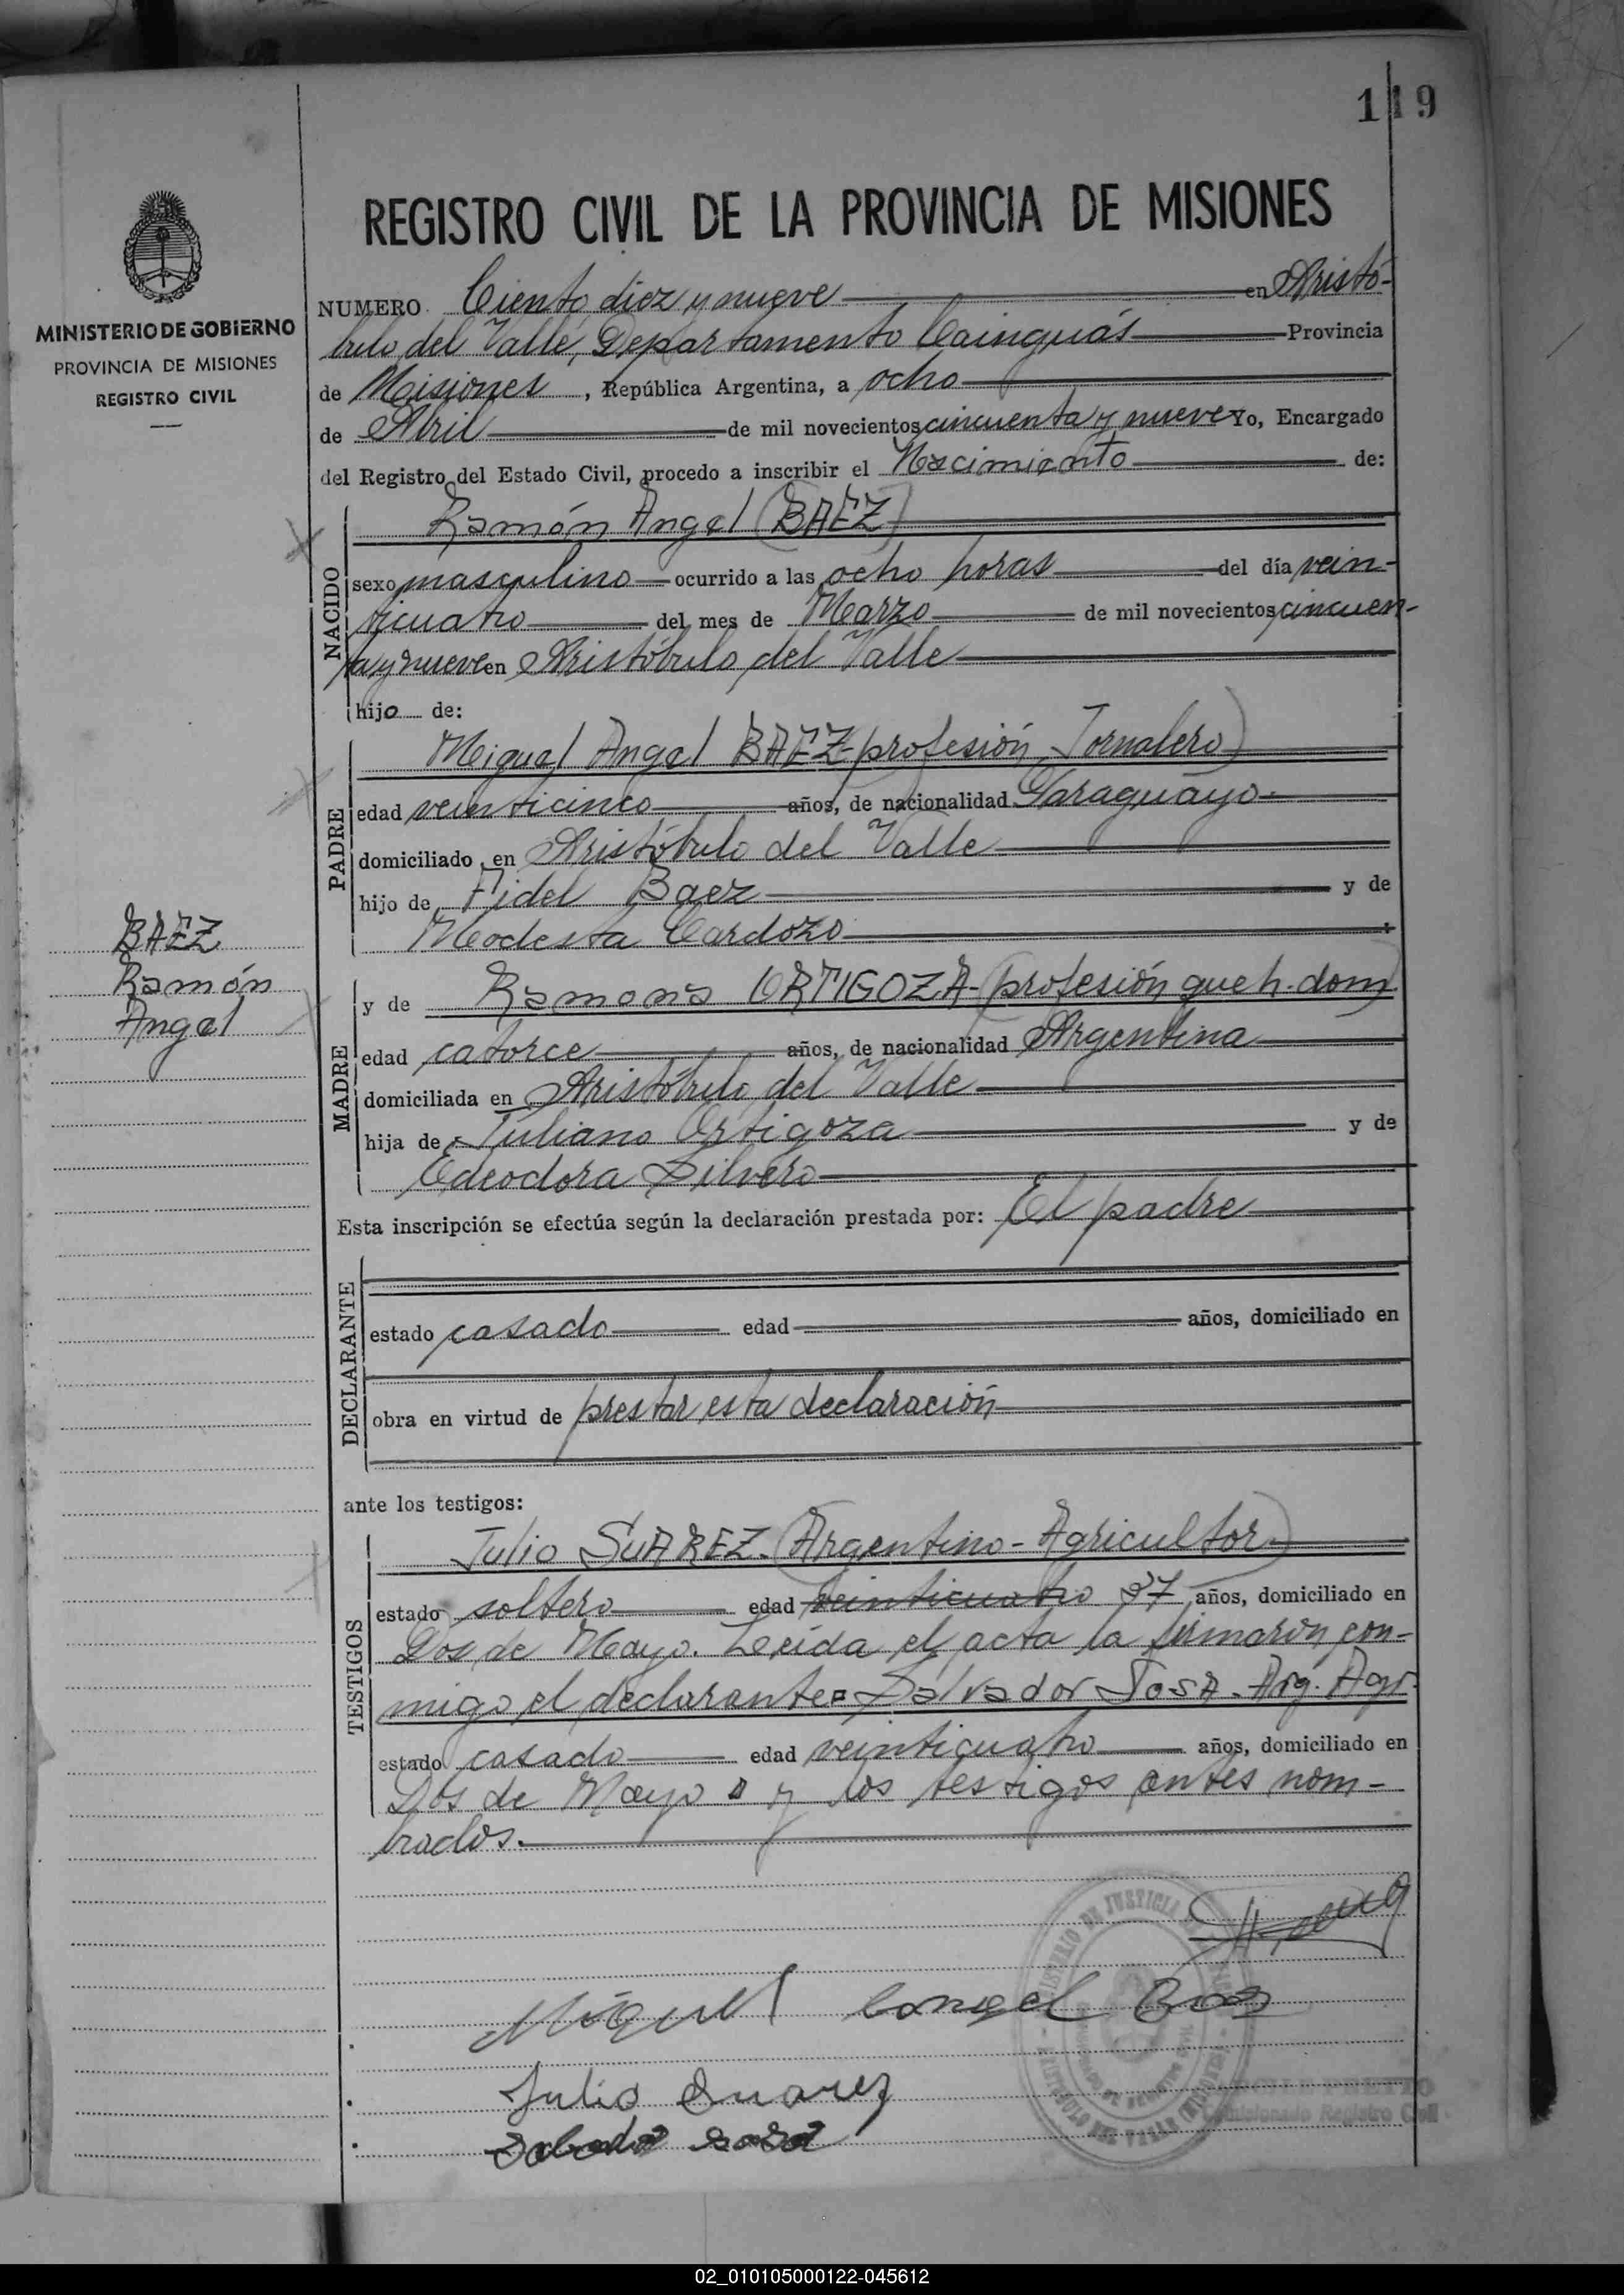 119
MINISTERIO DE GOBIERNO
PROVINCIA DE MISIONES
REGISTRO CIVIL
REGISTRO CIVIL DE LA PROVINCIA DE MISIONES
NUMERO Ciento diez y nueve en Aristó-
bulo del Valle, Departamento Cainguás Provincia
de Misiones, República Argentina, a ocho
de Abril de mil novecientos cincuenta y nueve Yo, Encargado
del Registro del Estado Civil, procedo a inscribir el Nacimiento de:
NACIDO
Ramón Angel (BAEZ)
sexo masculino ocurrido a las ocho horas del día vein-
ticuatro del mes de Marzo de mil novecientos cincuen-
ta y nueve en Aristóbulo del Valle
hijo de:
PADRE
Miguel Angel BAEZ-(profesión Jornalero)
edad veinticinco años, de nacionalidad Paraguayo.
domiciliado en Aristóbulo del Valle
hijo de Fidel Baez y de
Modesta Cardozo
BAEZ
Ramón
Angel
MADRE
y de Ramona ORTIGOZA-(profesión queh. dom)
edad catorce años, de nacionalidad Argentina
domiciliada en Aristóbulo del Valle
hija de Juliano Ortigoza y de
Edeodora Silvero
Esta inscripción se efectúa según la declaración prestada por: El padre
DECLARANTE
estado casado edad años, domiciliado en
obra en virtud de prestar esta declaración
ante los testigos:
TESTIGOS
Julio SUAREZ. (Argentino - Agricultor)
estado soltero edad veinticuatro 27 años, domiciliado en
Dos de Mayo. Leída el acta la firmaron con-
migo el declarante= Salvador SosA. Arg. Agr.
estado casado edad veinticuatro años, domiciliado en
Dos de Mayo y los testigos antes nom-
brados.
Miguel Angel Baez
Julio Suarez
Salvador Sosa
Registro Civil
02_010105000122-045612